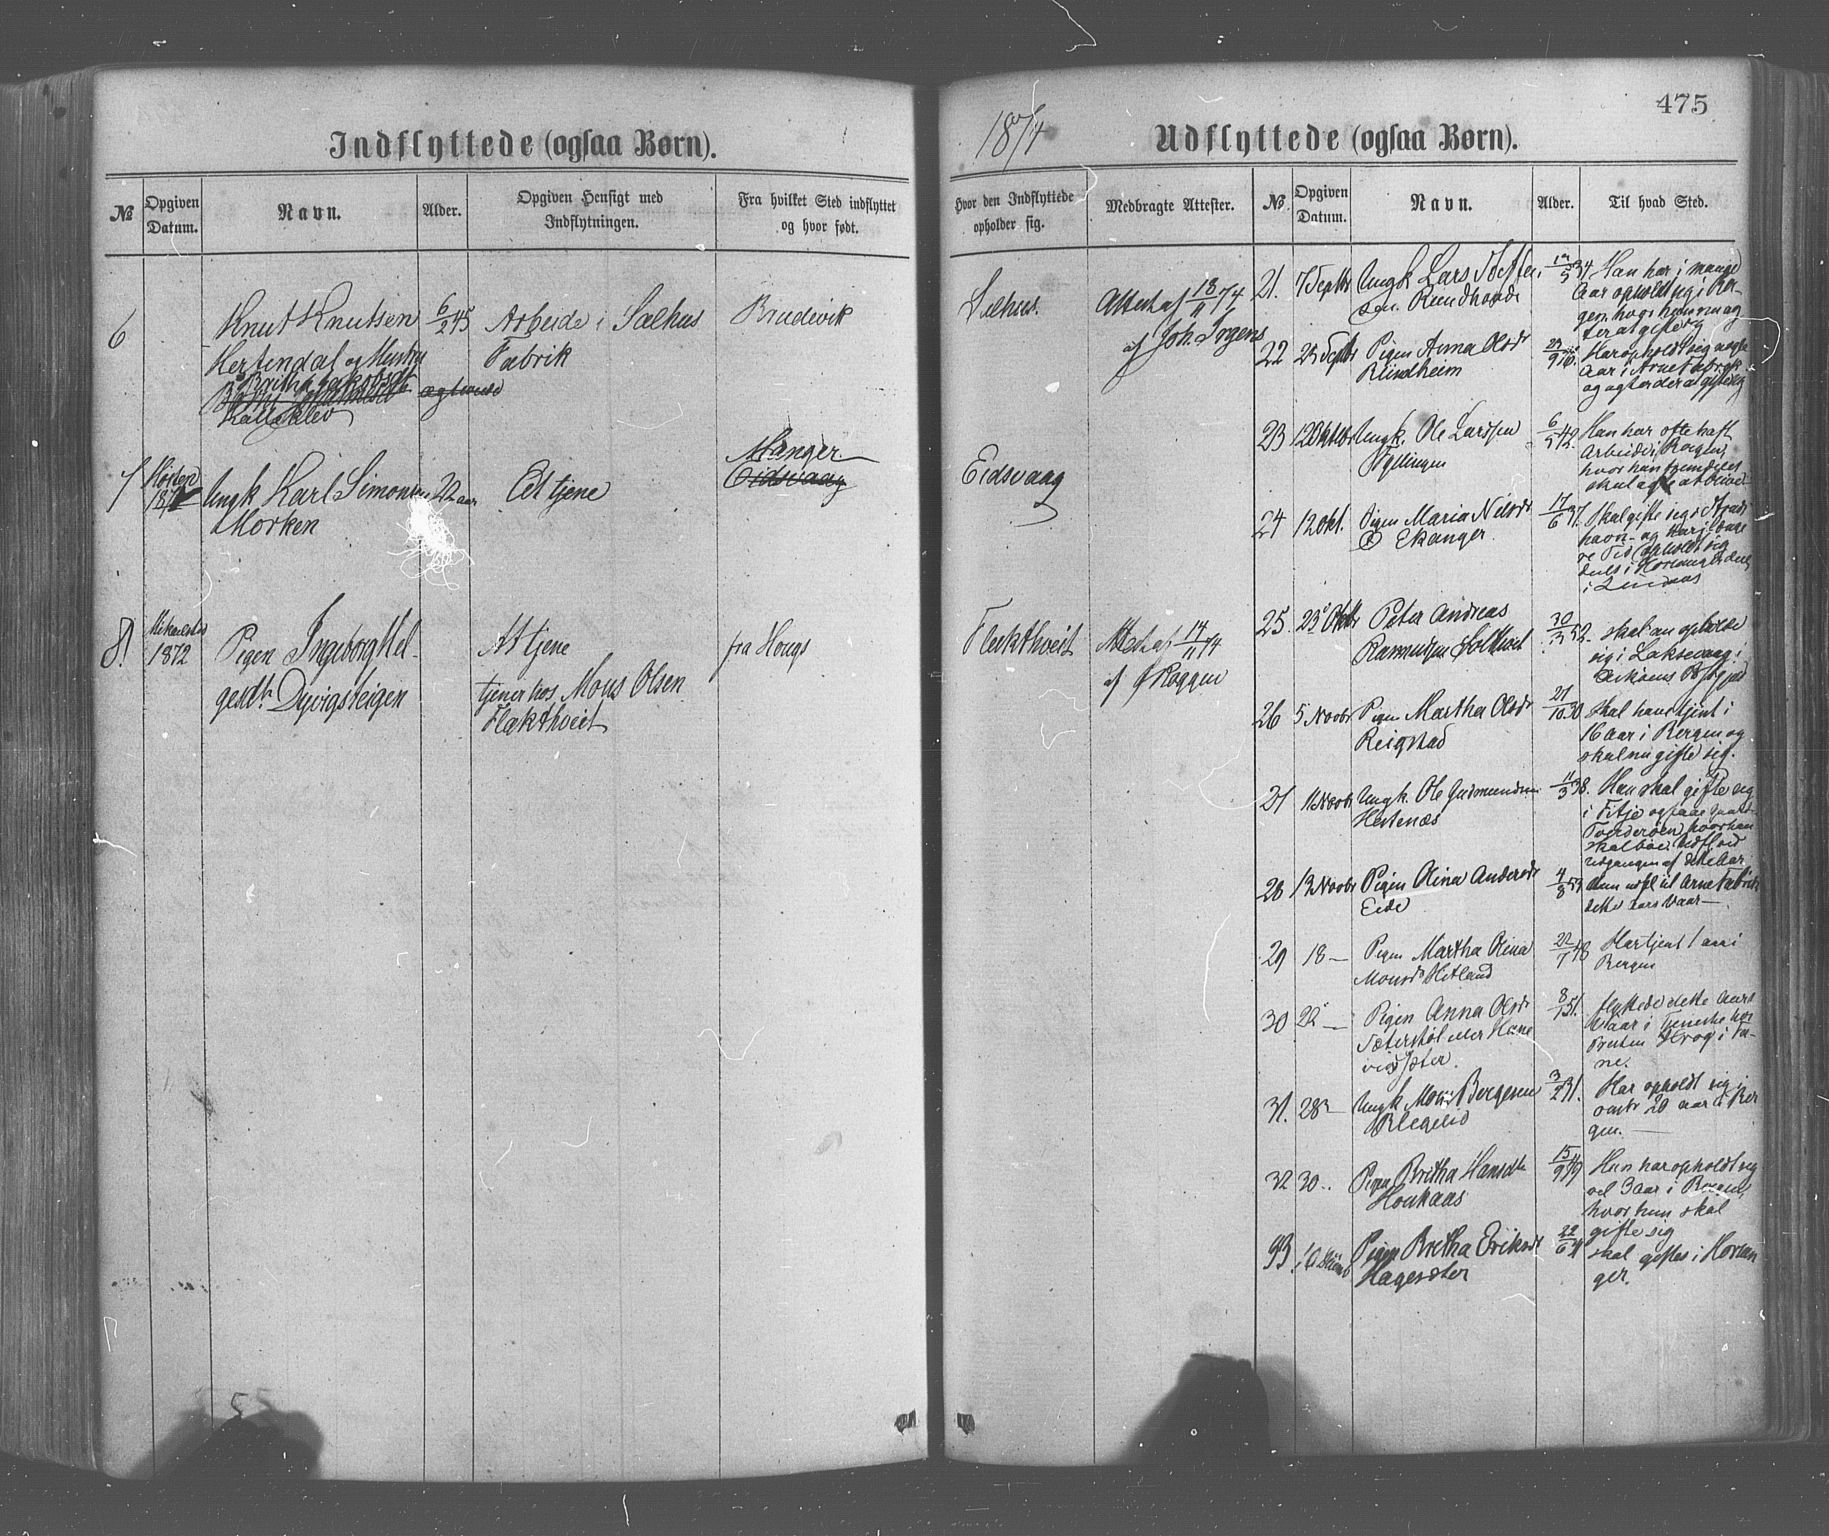 475
Indflyttede (ogsaa Børn).
1874
Udflyttede (ogsaa Børn).
№
Opgiven Datum.
Navn.
Alder.
Opgiven Hensigt med Indflytningen.
Fra hvilket Sted indflyttet og hvor født.
Hvor den Indflyttede opholder sig.
Medbragte Attester.
6
Knut Knutsen
Hertindal og Hustru
Britha Jakobsdt
6/2 45
Arbeide i Salhus
Fabrik
Brudevik
Salhus.
Attest af 18/11 74
af Joh. Irgens
7
Høsten
187
Ungk Karl Simonsen
Morken
22 aar
At tjene
Manger
Eidsvaag
Eidsvaag
8.
Mikaelstid
1872
Pigen Ingeborg Hel-
gesdtr Dyvigsteigen
At tjene
tjener hos Mons Olsen
Flakthveit
fra Hougs
Flaktveit
Attest af 14/11 74
af
№
Opgiven Datum.
Navn.
Alder.
Til hvad Sted.
21.
7 Septbr
Ungk Lars
sen. Rundhovde
34
Han har i mange
Aar opholdt sig i Ber-
gen, hvor han nu ag
ter at gifte sig
22
23 Septbr
Pigen Anna Olsdr
Blindheim
Har opholdt sig nogle
Aar i Arne Fabrik
og agter der at gifte sig
23
12 Oktobr
Ungk. Ole Larssen
Tyllingen
6/5 42.
Han har ofte haft
Arbeide i Bergen,
hvor han fremdeles
skal agte at blive
24
12 Okt.
Pigen Maria Nilsdr
Ekanger
17/6 37.
Skal gifte sig i
havn og har i længe
re Tid opholdt sig
dels i Hosanger dels
i Lindaas
25.
23 Oktbr
Peter Andreas
Rasmussen Soltveit
30/3 52.
skal nu opholde
sig i Laksevaag i
Askøens Prgjæld
26
5 Novbr
Pigen Martha Olsdr
Reigstad
21/10 30
skal have tjent i
16 Aar i Bergen og
skal nu gifte sig.
27
11 Novbr
Ungk. Ole Gudmundsen
Hestenæs
11/3 38.
Han skal gifte sig
i Fitje ogsaa
hvor han
skal boe. Udfl. ved
Udgangen af dette Aar
28
13 Novbr
Pigen Olina Andersdr
Eide
4/8 53
Hun udfl til Arne Fabrik
dette Aars Vaar —
29
18 —
Pigen Martha Olina
Monsdr Hetland
22/7 48
Har tjent 1 aar i
Bergen
30
22 —
Pigen Anna Olsdr
Sæterstøl eller Hane
vigsæter.
8/1 51.
flyttede dette Aars
Vaar i Tjeneste hos
Presten Krog i Fa-
ne.
31.
28 —
Ungk Mons Børgesen
Blegelid
3/2 31.
Har opholdt sig i
omtr 20 aar i Ber
gen. —
32
30 ..
Pigen Britha Hansdtr
Houkaas
15/9 49
Hun har opholdt sig
vel 3 aar i Bergen,
hvor hun skal
gifte sig
33
Pigen Britha Eriksdr
Hagesæter
22/6
skal giftes i Hosan
ger.